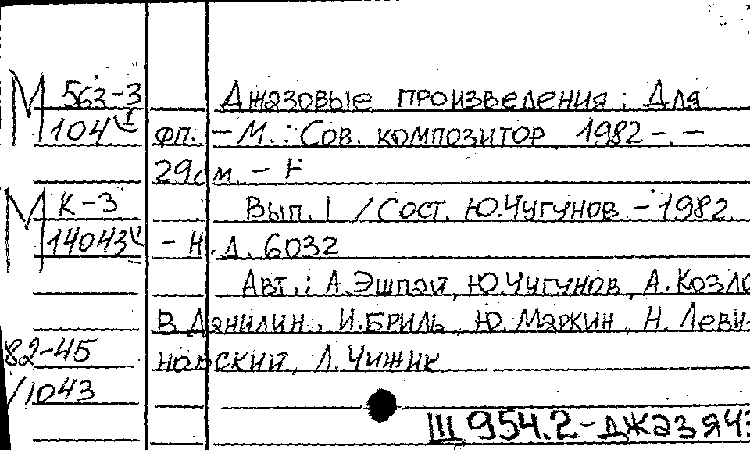 М 563-3
104
Джазовые произведения: Для
фп. - М.: Сов. композитор 1982 -. -
29 см. - Н
М К-3
14043
Вып. 1 / Сост. Ю.Чугунов - 1982
- Н.Д. 6032
Авт.: А.Эшпай, Ю.Чугунов, А.Козло
В Данилин, И.Бриль, Ю.Маркин, Н.Леви-
новский, Л.Чижик
82-45
/1043
Ш 954.2-джаз я43